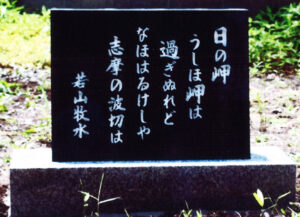 日の岬
うしほ岬は
過ぎぬれど
なほはるけしや
志摩の波切は
若山牧水